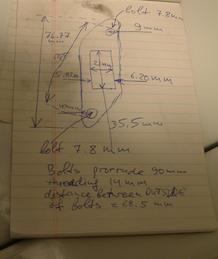 bolt 7.8mm
9mm
76.77
mm
21mm
6.20mm
35.5mm
bolt 7.8 mm
Bolts protrude 90mm
threading 14mm
distance between OUTSIDE
of bolts = 68.5 mm